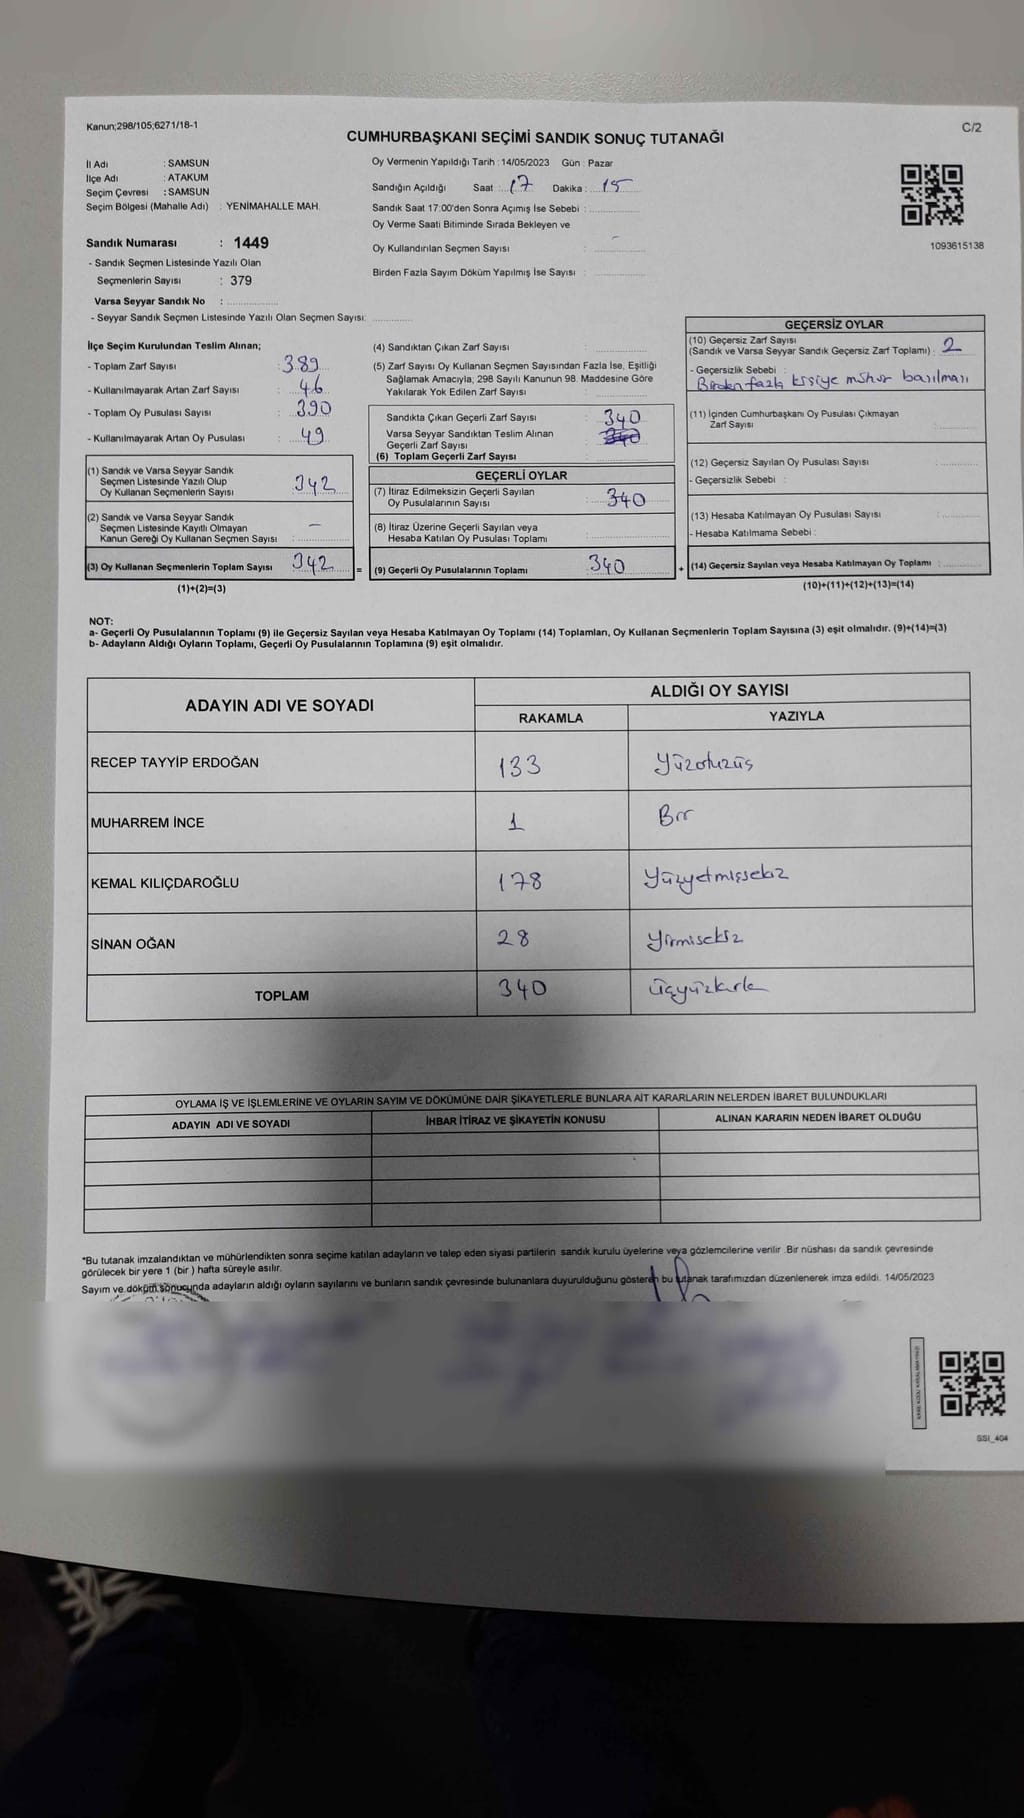 Kanun;298/105;6271/18-1
C/2
CUMHURBAŞKANI SEÇİMİ SANDIK SONUÇ TUTANAĞI
İl Adı : SAMSUN
İlçe Adı : ATAKUM
Seçim Çevresi : SAMSUN
Seçim Bölgesi (Mahalle Adı) : YENİMAHALLE MAH.
Sandık Numarası : 1449
- Sandık Seçmen Listesinde Yazılı Olan
Seçmenlerin Sayısı : 379
Varsa Seyyar Sandık No :
- Seyyar Sandık Seçmen Listesinde Yazılı Olan Seçmen Sayısı:
Oy Vermenin Yapıldığı Tarih : 14/05/2023 Gün : Pazar
Sandığın Açıldığı Saat : 17 Dakika : 15
Sandık Saat 17:00'den Sonra Açımış İse Sebebi :
Oy Verme Saati Bitiminde Sırada Bekleyen ve
Oy Kullandırılan Seçmen Sayısı : -
Birden Fazla Sayım Döküm Yapılmış İse Sayısı :
1093615138
İlçe Seçim Kurulundan Teslim Alınan;
- Toplam Zarf Sayısı : 389
- Kullanılmayarak Artan Zarf Sayısı : 46
- Toplam Oy Pusulası Sayısı : 390
- Kullanılmayarak Artan Oy Pusulası : 49
(1) Sandık ve Varsa Seyyar Sandık
Seçmen Listesinde Yazılı Olup
Oy Kullanan Seçmenlerin Sayısı 342
(2) Sandık ve Varsa Seyyar Sandık
Seçmen Listesinde Kayıtlı Olmayan
Kanun Gereği Oy Kullanan Seçmen Sayısı : -
(3) Oy Kullanan Seçmenlerin Toplam Sayısı 342 =
(1)+(2)=(3)
(4) Sandıktan Çıkan Zarf Sayısı :
(5) Zarf Sayısı Oy Kullanan Seçmen Sayısından Fazla İse, Eşitliği
Sağlamak Amacıyla; 298 Sayılı Kanunun 98. Maddesine Göre
Yakılarak Yok Edilen Zarf Sayısı :
Sandıkta Çıkan Geçerli Zarf Sayısı : 340
Varsa Seyyar Sandıktan Teslim Alınan
Geçerli Zarf Sayısı : 340
(6) Toplam Geçerli Zarf Sayısı :
GEÇERLİ OYLAR
(7) İtiraz Edilmeksizin Geçerli Sayılan
Oy Pusulalarının Sayısı : 340
(8) İtiraz Üzerine Geçerli Sayılan veya
Hesaba Katılan Oy Pusulası Toplamı :
(9) Geçerli Oy Pusulalarının Toplamı : 340 +
GEÇERSİZ OYLAR
(10) Geçersiz Zarf Sayısı
(Sandık ve Varsa Seyyar Sandık Geçersiz Zarf Toplamı) : 2
- Geçersizlik Sebebi :
Birden fazla kişiye mühür basılması
(11) İçinden Cumhurbaşkanı Oy Pusulası Çıkmayan
Zarf Sayısı :
(12) Geçersiz Sayılan Oy Pusulası Sayısı :
- Geçersizlik Sebebi :
(13) Hesaba Katılmayan Oy Pusulası Sayısı :
- Hesaba Katılmama Sebebi :
(14) Geçersiz Sayılan veya Hesaba Katılmayan Oy Toplamı :
(10)+(11)+(12)+(13)=(14)
NOT:
a- Geçerli Oy Pusulalarının Toplamı (9) ile Geçersiz Sayılan veya Hesaba Katılmayan Oy Toplamı (14) Toplamları, Oy Kullanan Seçmenlerin Toplam Sayısına (3) eşit olmalıdır. (9)+(14)=(3)
b- Adayların Aldığı Oyların Toplamı, Geçerli Oy Pusulalarının Toplamına (9) eşit olmalıdır.
ADAYIN ADI VE SOYADI ALDIĞI OY SAYISI
RAKAMLA YAZIYLA
RECEP TAYYİP ERDOĞAN 133 Yüzotuzüç
MUHARREM İNCE 1 Bir
KEMAL KILIÇDAROĞLU 178 Yüzyetmişsekiz
SİNAN OĞAN 28 Yirmisekiz
TOPLAM 340 Üçyüzkırk
OYLAMA İŞ VE İŞLEMLERİNE VE OYLARIN SAYIM VE DÖKÜMÜNE DAİR ŞİKAYETLERLE BUNLARA AİT KARARLARIN NELERDEN İBARET BULUNDUKLARI
ADAYIN ADI VE SOYADI İHBAR İTİRAZ VE ŞİKAYETİN KONUSU ALINAN KARARIN NEDEN İBARET OLDUĞU
*Bu tutanak imzalandıktan ve mühürlendikten sonra seçime katılan adayların ve talep eden siyasi partilerin sandık kurulu üyelerine veya gözlemcilerine verilir .Bir nüshası da sandık çevresinde
görülecek bir yere 1 (bir ) hafta süreyle asılır.
Sayım ve döküm sonucunda adayların aldığı oyların sayılarını ve bunların sandık çevresinde bulunanlara duyurulduğunu gösteren bu tutanak tarafımızdan düzenlenerek imza edildi. 14/05/2023
SSI_404